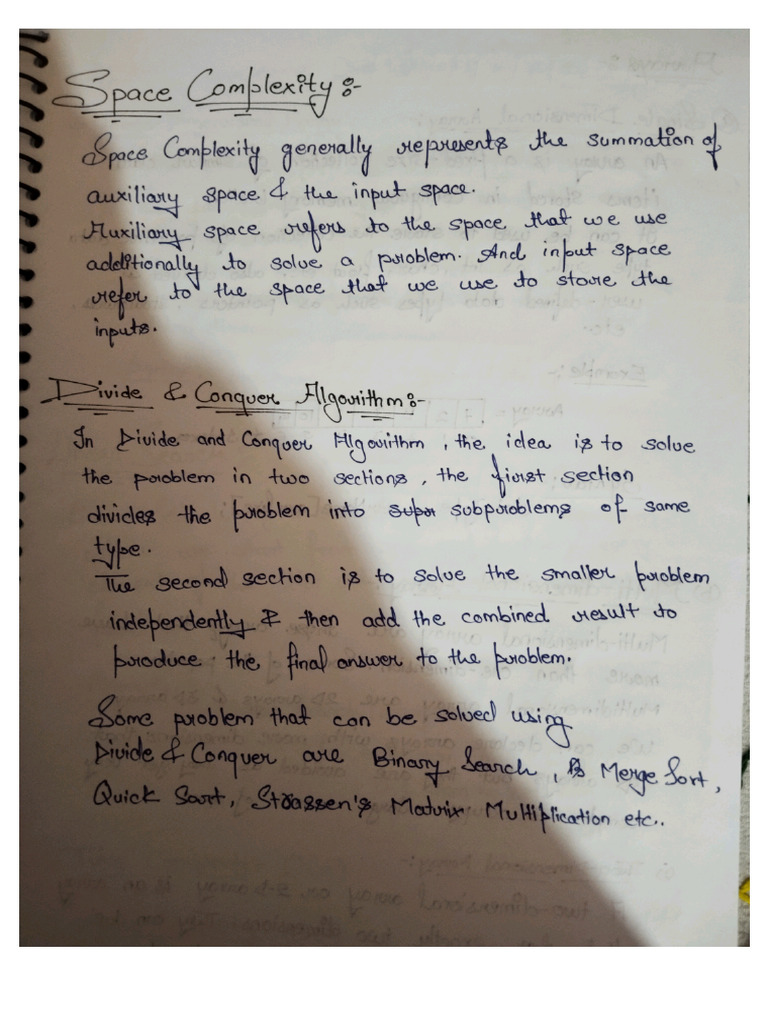 Space Complexity :-
Space Complexity generally represents the summation of
auxiliary space & the input space.
Auxiliary space refers to the space that we use
additionally to solve a problem. And input space
refer to the space that we use to store the
inputs.
Divide & Conquer Algorithm :-
In Divide and Conquer Algorithm, the idea is to solve
the problem in two sections, the first section
divides the problem into subproblems of same
type.
The second section is to solve the smaller problem
independently & then add the combined result to
produce the final answer to the problem.
Some problem that can be solved using
Divide & Conquer are Binary Search, Merge Sort,
Quick Sort, Strassen's Matrix Multiplication etc..